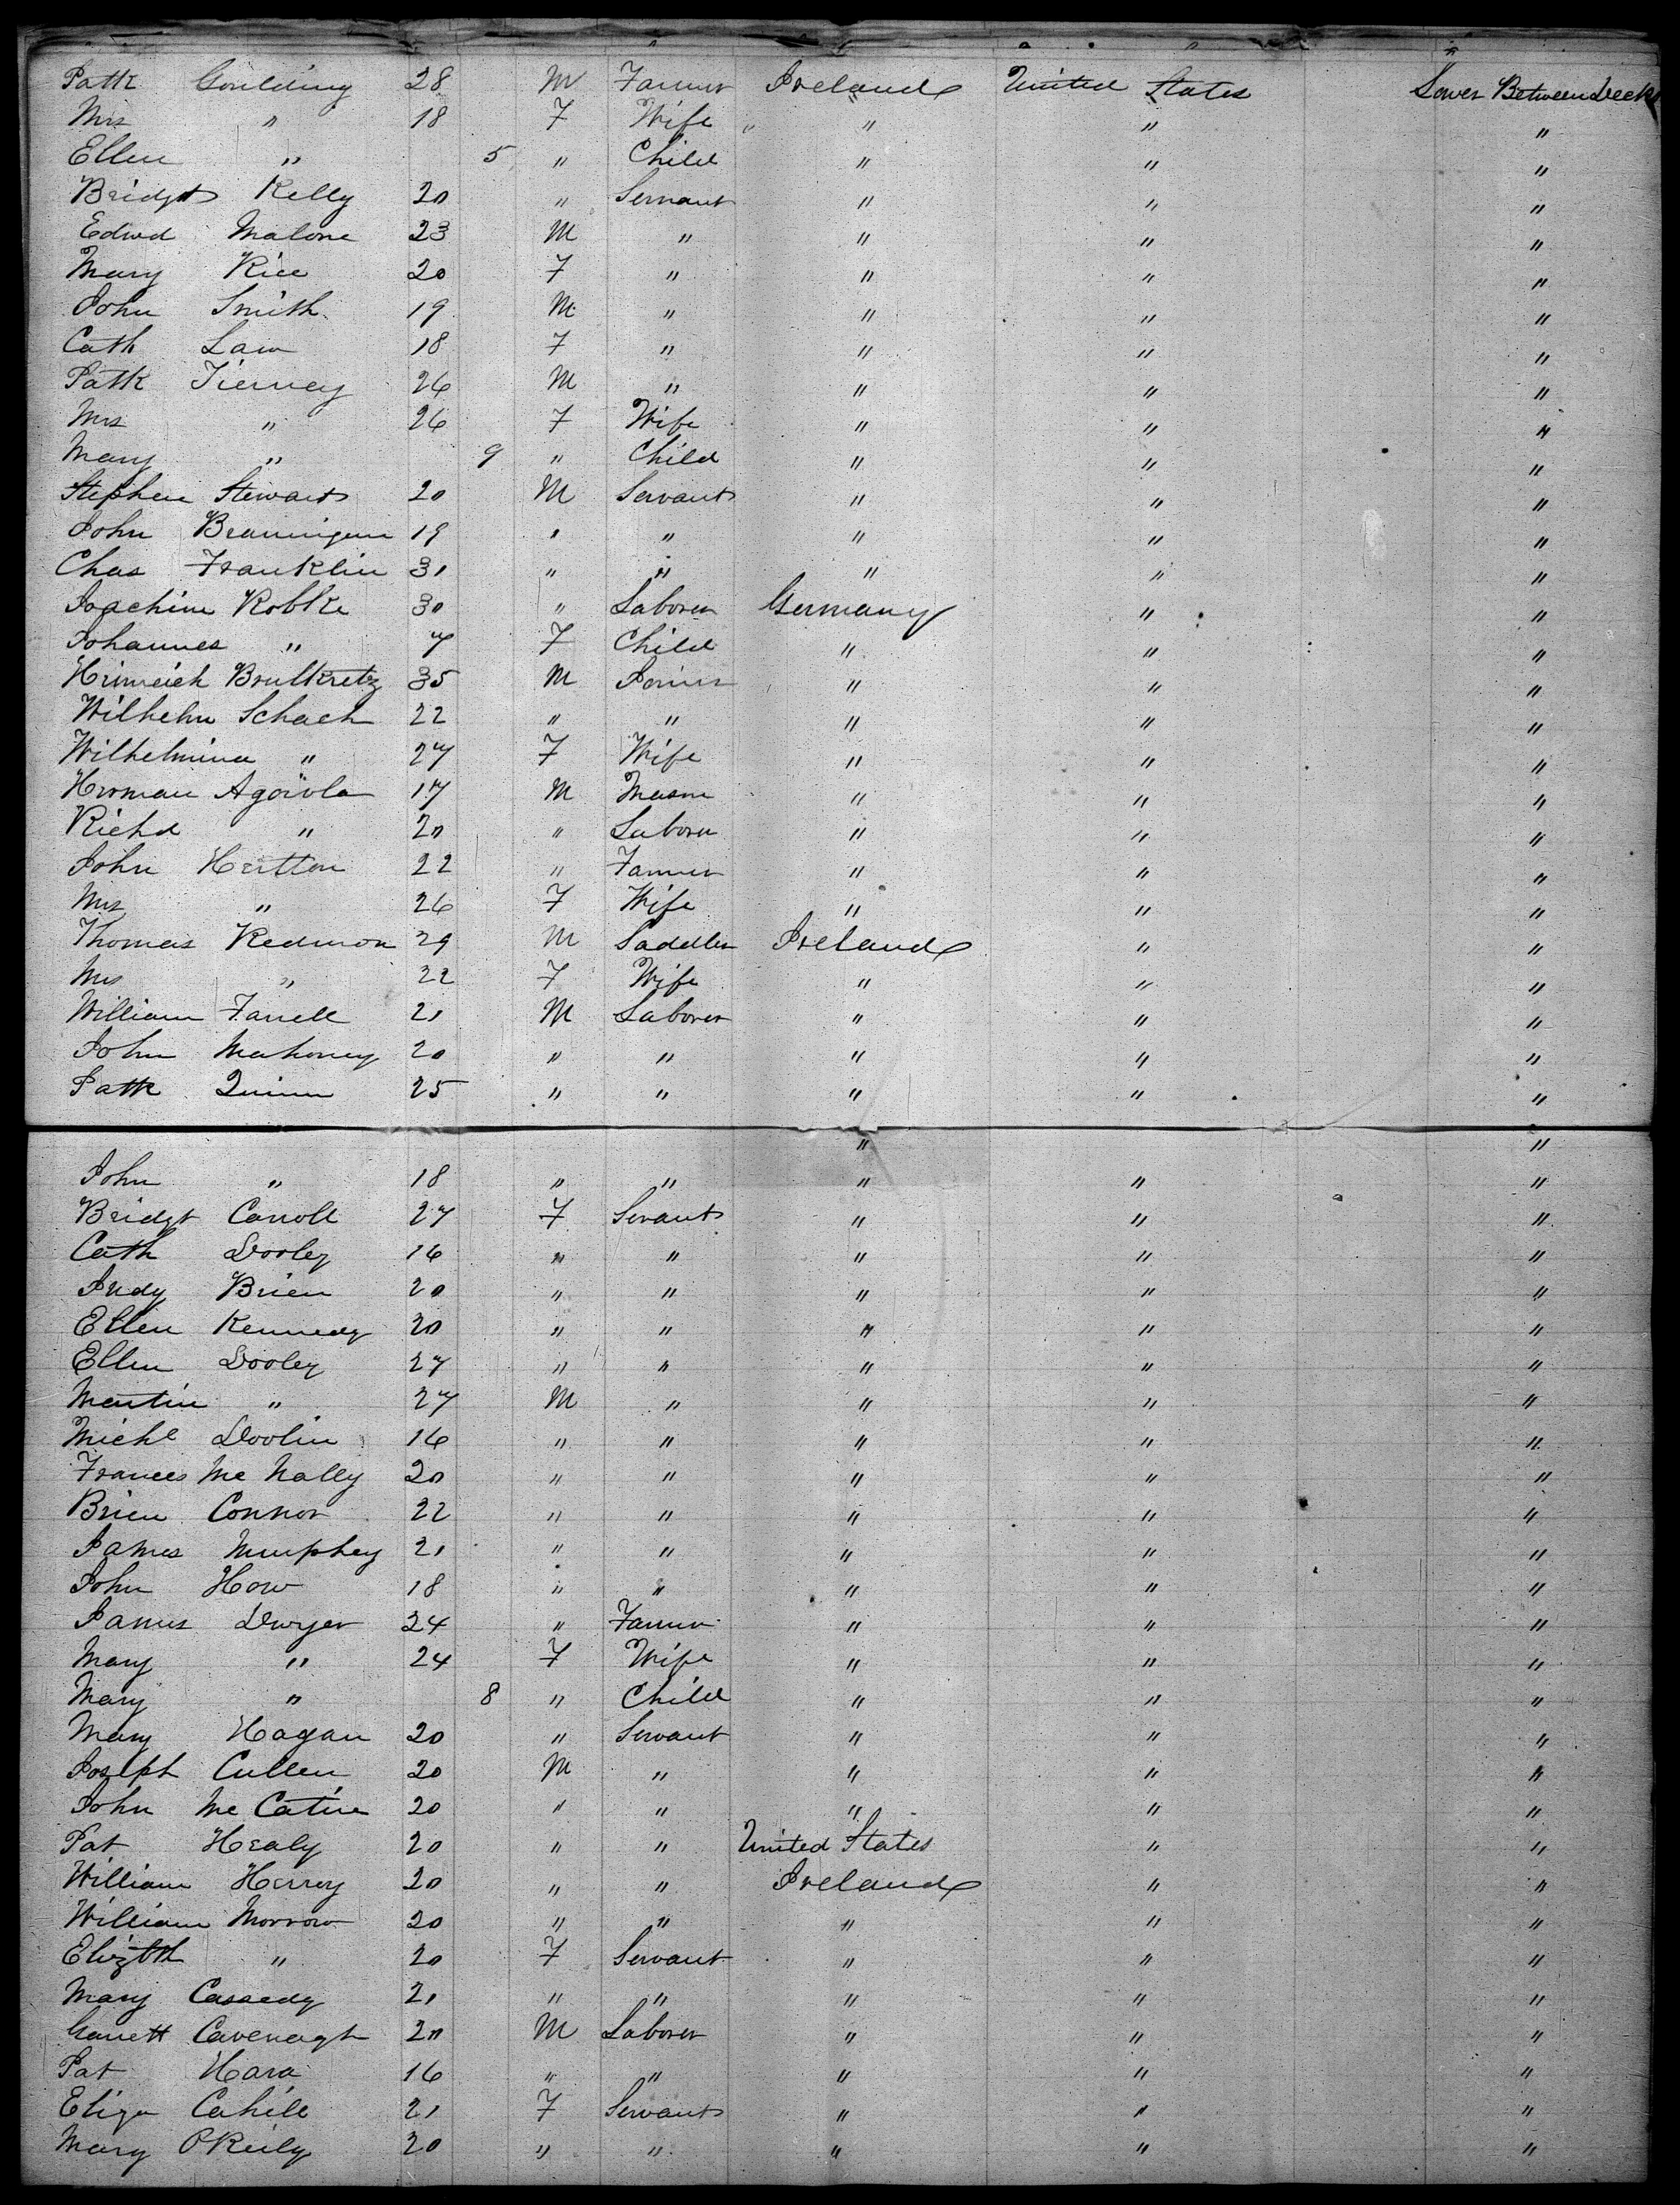 Patk Goulding 28 M Farmer Ireland United States Lower Between Decks
Mrs " 18 F Wife " " "
Ellen " 5 " Child " " "
Bridgt Kelly 20 " Servant " " "
Edwd Malone 23 M " " " "
Mary Rice 20 F " " " "
John Smith 19 M " " " "
Cath Law 18 F " " " "
Patk Tierney 26 M " " " "
Mrs " 26 F Wife " " "
Mary " 9 " Child " " "
Stephen Stewart 20 M Servant " " "
John Brannigan 19 " " " " "
Chas Franklin 30 " " " " "
Joachim Robke 30 " Laborer Germany " "
Johannes " 7 F Child " " "
Heinreich 35 M Joiner " " "
Wilhelm Schach 22 " " " " "
Wilhelmina " 27 F Wife " " "
Herman 17 M Mason " " "
Richd " 20 " Laborer " " "
John Hutton 22 " Farmer " " "
Mrs " 26 F Wife " " "
Thomas Redmon 29 M Saddler Ireland " "
Mrs " 22 F Wife " " "
William Farrell 21 M Laborer " " "
John Mahoney 20 " " " " "
Patk Quinn 25 " " " " "
" "
John " 18 " " " " "
Bridgt Carroll 27 F Servant " " "
Cath Dooley 16 " " " " "
Judy Brien 20 " " " " "
Ellen Kennedy 20 " " " " "
Ellen Dooley 27 " " " " "
Martin " 27 M " " " "
Michl Doolin 16 " " " " "
Frances Mc Nally 20 " " " " "
Brien Connor 22 " " " " "
James Murphey 21 " " " " "
John How 18 " " " " "
James Dwyer 24 " Farmer " " "
Mary " 24 F Wife " " "
Mary " 8 " Child " " "
Mary Hagan 20 " Servant " " "
Joseph Cullen 20 M " " " "
John Mc 20 " " " " "
Pat Healy 20 " " United States " "
William Henry 20 " " Ireland " "
William Morrow 20 " " " " "
Elizbth " 20 F Servant " " "
Mary Cassedy 21 " " " " "
Garrett Cavenagh 20 M Laborer " " "
Pat Hara 16 " " " " "
Eliza Cahill 21 F Servant " " "
Mary O'Reily 20 " " " " "